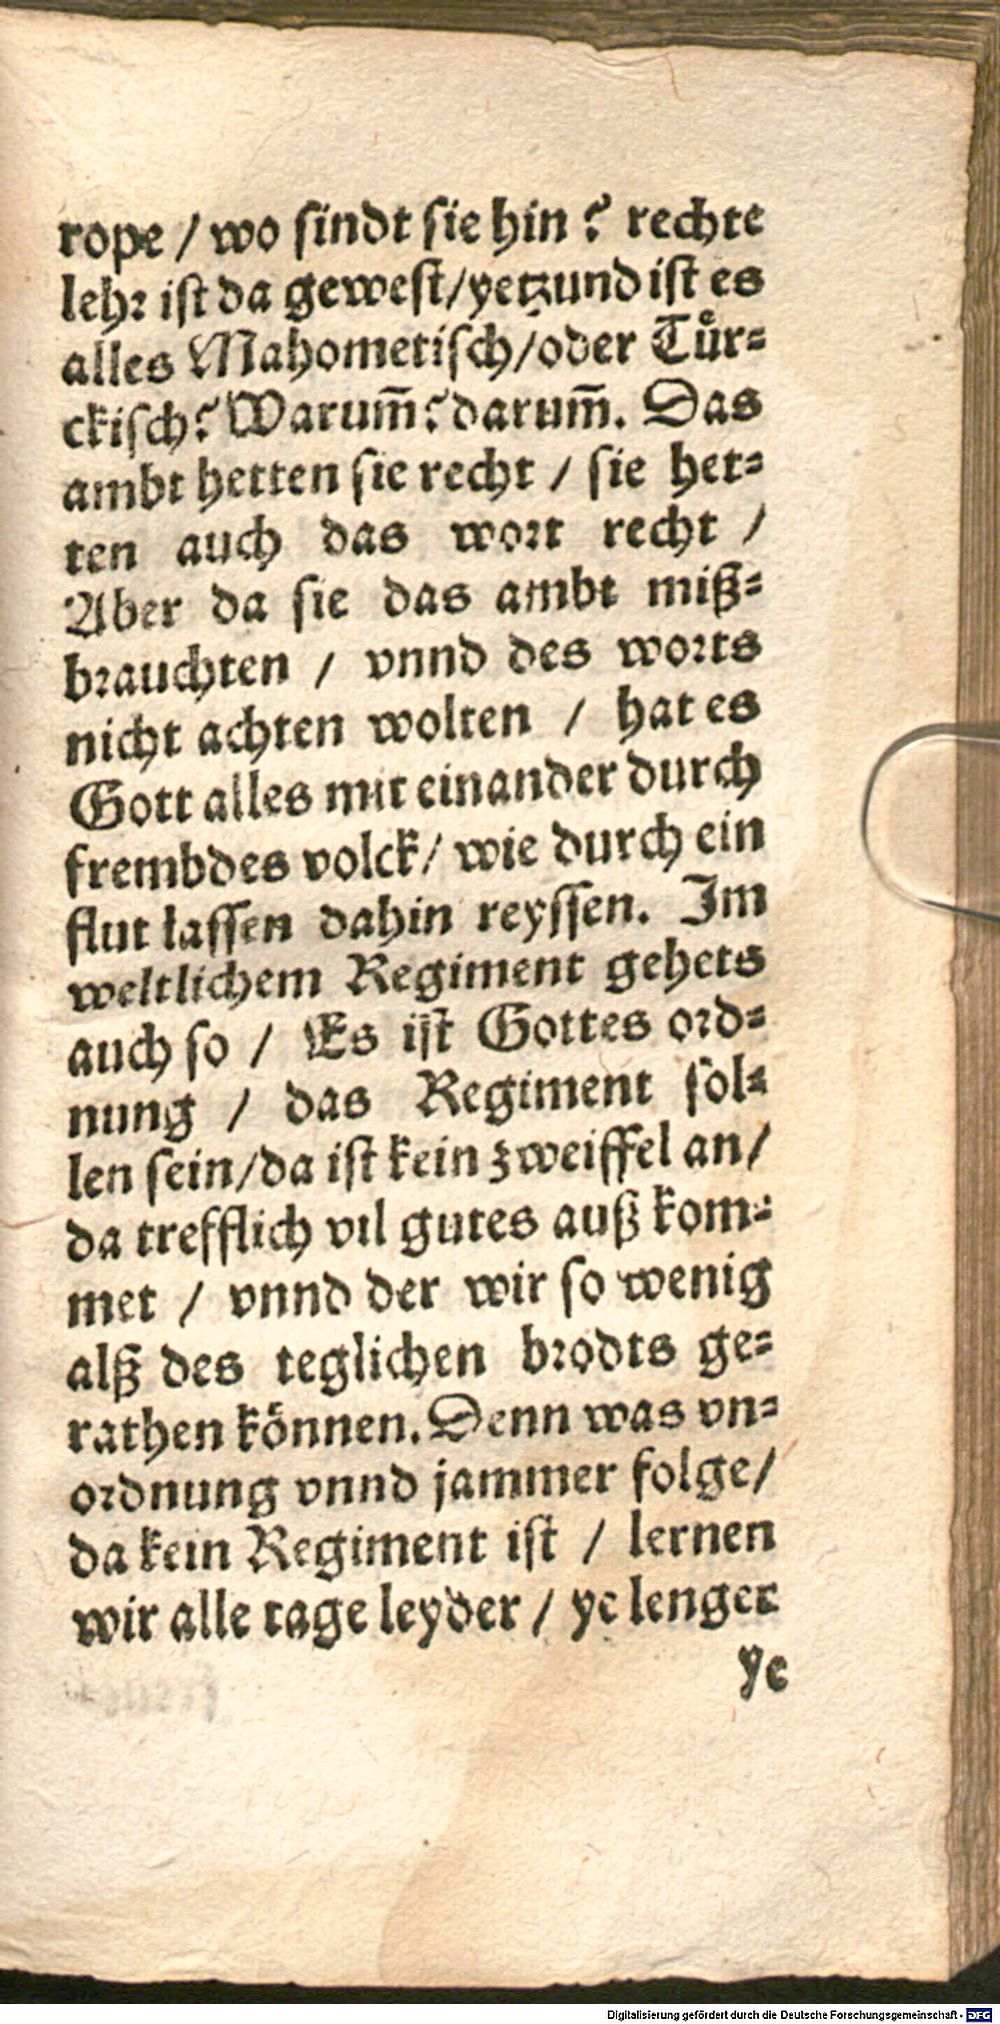 rope / wo ſindt ſie hin? rechte
lehꝛ iſt da geweſt/yetzund iſt es
alles Mahometiſch/oder Tuͤr⸗
ckiſch? Warum̃? darum̃. Das
ambt hetten ſie recht / ſie het⸗
ten auch das woꝛt recht /
Aber da ſie das ambt miß⸗
bꝛauchten / vnnd des woꝛts
nicht achten wolten / hat es
Gott alles mit einander durch
frembdes volck/ wie durch ein
flut laſſen dahin reyſſen. Im
weltlichem Regiment gehets
auch ſo / Es iſt Gottes oꝛd⸗
nung / das Regiment ſol⸗
len ſein/da iſt kein zweiffel an/
da trefflich vil gutes auß kom⸗
met / vnnd der wir ſo wenig
alß des teglichen bꝛodts ge⸗
rathen koͤnnen. Denn was vn⸗
oꝛdnung vnnd jammer folge/
da kein Regiment iſt / lernen
wir alle tage leyder / ye lenger
ye
Digitalisierung gefördert durch die Deutsche Forschungsgemeinschaft - DFG